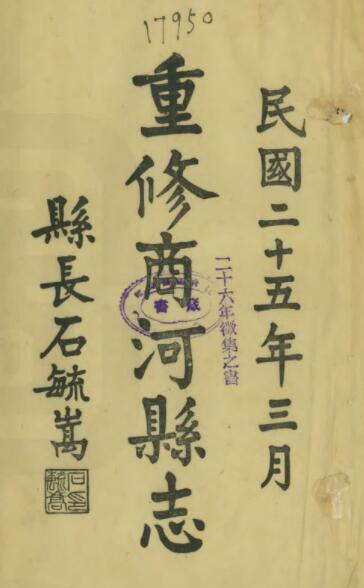 17950
民國二十五年三月
重修商河縣志
二十六年徵集之書
藏書
縣長石毓嵩
石毓嵩